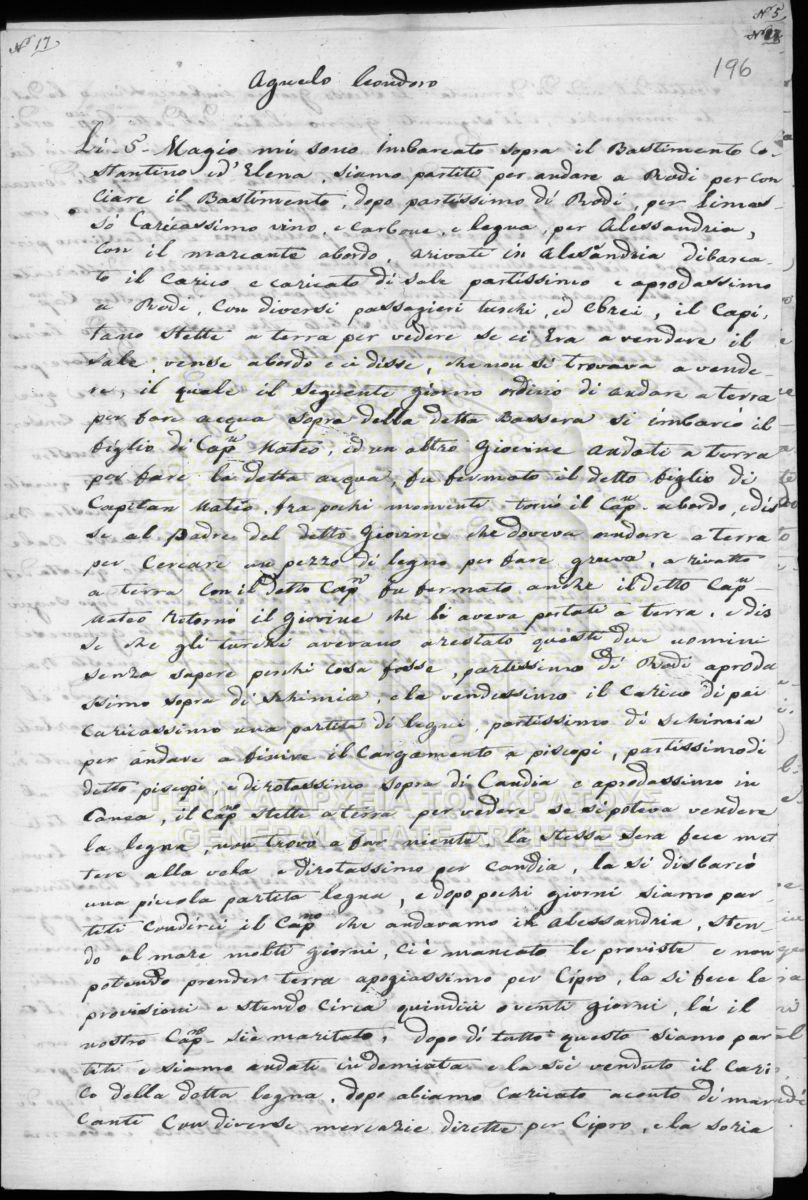 N° 17
N° 5
196
Agnelo Leondoro
Li 5 - Magio mi sono Imbarcato sopra il Bastimento Co-
stantino ed' Elena, siamo partiti per andare a Rodi per con
ciare il Bastimento, dopo partissimo di Rodi, per Limas-
só Caricassimo vino, e carbone, e legna, per Alessandria,
Con il marcante abordo, arivati in Alesandria dibarca-
to il Carico e caricato di sale partissimo e aprodassimo
a Rodi, Con diversi passagieri turchi, ed Ebrei, il Capi-
tano stette a terra per vedere se ci Era a vendere il
sale, vense abordo e ci disse, che non si trovava a vende-
re, il quale il seguente giorno ordino di andare a terra
per fare acqua sopra della detta Bassera si imbarcò il
figlio di Capn Mateo, ed un altro Giovine andati a terra
per fare la detta acqua, fu fermato il detto figlio di
Capitan Matio, fra pochi momenti tornò il Capn abordo, e dis
se al Padre del detto Giovine che doveva andare a terra
per Cercare un pezzo di legno per fare grava, a rivatto
a terra Con il detto Capn fu fermato anche il detto Capn
Mateo Retornò il Giovine che li aveva portati a terra, e dis
se che gli turchi avevano arestato questi due uomini
senza sapere perchi cosa fosse, partissimo di Rodi aproda
ssimo sopra di Schimia, e la vendessimo il Carico di poi
Caricassimo una partita di legni, partissimo di Schimia
per andare a finire il Cargamento a piscopi, partissimo di
detto piscopi, e dirotassimo sopra di Candia e aprodassimo in
Canea, il Capno stette a terra per vedere se si poteva vendere
la legna, non trovo a far niente la stessa sera fece met
tere alla vela, e dirotassimo per Candia, la si disbarcò
una piccola partita legna, e dopo pochi giorni siamo par
titi Condirci il Capno che andavamo in Alessandria, sten-
do al mare molti giorni, ci è mancato le proviste e non
potendo prender terra apogiassimo per Cipro, la si fece le
provisioni e stendo Circa quindici o venti giorni, là il
nostro Capno si è maritato, dopo di tutto questo siamo par
titi e siamo andati in demiata e la si è venduto il Cari-
co della detta legna, dopo abiamo Caricato aconto di mar
canti Con diverse mercazie dirette per Cipro, e la soria
ΓΕΝΙΚΑ ΑΡΧΕΙΑ ΤΟΥ ΚΡΑΤΟΥΣ
GENERAL STATE ARCHIVES